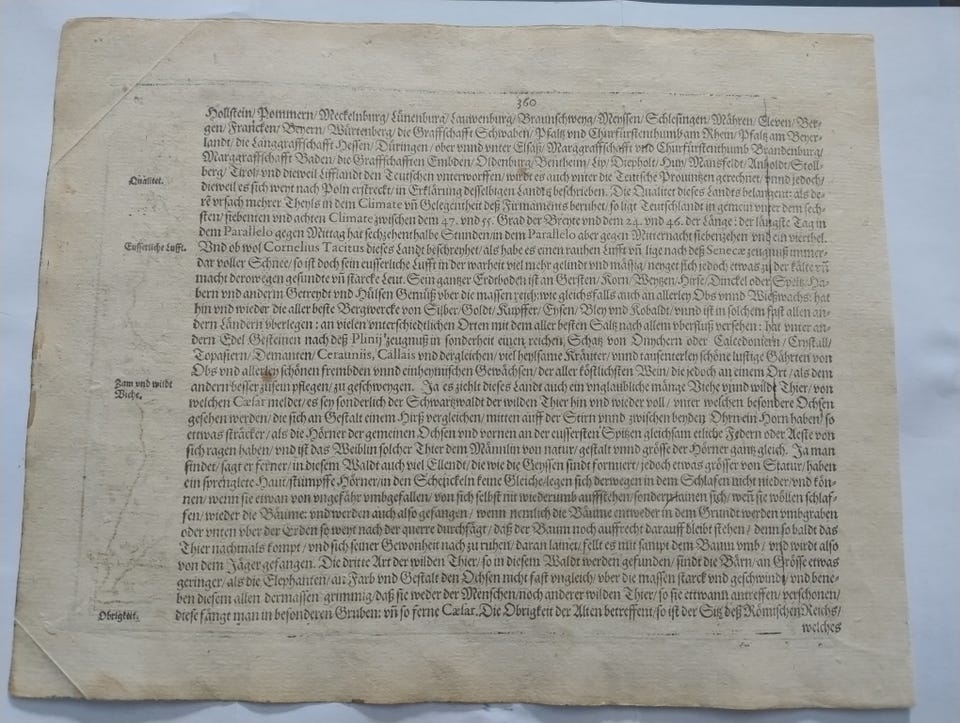 360
Hollstein/ Pommern/ Meckelnburg/ Lünenburg/ Lauwenburg/ Braunschweig/ Meyssen/ Schlesingen/ Mähren/ Cleven/ Ber-
gen/ Francken/ Beyern/ Würtenberg/ die Graffschafft Schwaben/ Pfaltz vnd Churfürstenthumb am Rhein/ Pfaltz am Beyer-
landt/ die Landgraffschafft Hessen/ Düringen/ ober vnnd vnter Elsaß/ Marggraffschafft vnd Churfürstenthumb Brandenburg/
Marggraffschafft Baden/ die Graffschafften Embden/ Oldenburg/ Bentheim/ Lip/ Diepholt/ Huy/ Mansfeldt/ Anholdt/ Stoll-
berg/ Tirol/ vnd dieweil Lifflandt den Teutschen vnterworffen/ wirdt es auch vnter die Teutsche Prouintzen gerechnet/ vnnd jedoch/
Qualitet.
dieweil es sich weyt nach Poln erstreckt/ in Erklärung desselbigen Landts beschrieben. Die Qualitet dieses Landts belangent: als de-
rē vrsach mehrer Theyls in dem Climate vñ Gelegenheit deß Firmaments beruhet/ so ligt Teutschlandt in gemein vnter dem sech-
sten/ siebenten vnd achten Climate zwischen dem 47. vnd 55. Grad der Breyte vnd dem 24. vnd 46. der Länge: der längste Tag in
dem Parallelo gegen Mittag hat sechzehenthalbe Stunden/ in dem Parallelo aber gegen Mitternacht siebenzehen vnd ein viertheil.
Eusserliche Lufft.
Vnd ob wol Cornelius Tacitus dieses Landt beschreybet/ als habe es einen rauhen Lufft vñ lige nach deß Senecæ zeugnuß immer-
dar voller Schnee/ so ist doch sein eusserliche Lufft in der warheit viel mehr gelindt vnd mässig/ neyget sich jedoch etwas zu der kälte vñ
macht derowegen gesundte vñ starcke Leut. Sein gantzer Erdtboden ist an Gersten/ Korn/ Weytzen/ Hirse/ Dinckel oder Speltz/ Ha-
bern vnd anderm Getreydt vnd Hülsen Gemüß vber die massen reich: wie gleichsfals auch an allerley Obs vnnd Wießwachs: hat
hin vnd wieder die aller beste Bergwercke von Silber/ Goldt/ Kupffer/ Eysen/ Bley vnd Kobaldt/ vnnd ist in solchem fast allen an-
dern Ländern vberlegen: an vielen vnterschiedtlichen Orten mit dem aller besten Saltz nach allem vberfluß versehen: hat vnter an-
dern Edel Gesteinen nach deß Plinij zeugnuß in sonderheit einen reichen Schatz von Onychern oder Calcedoniern/ Crystall/
Topasiern/ Demanten/ Cerauniis, Callais vnd dergleichen/ viel heylsame Kräuter/ vnnd tausenterley schöne lustige Gährten von
Obs vnd allerley schönen frembden vnnd einheymischen Gewächsen/ der aller köstlichsten Wein/ die jedoch an einem Ort/ als dem
Zam vnd wildt
Viehe.
andern besser zu sein pflegen/ zu geschweygen. Ja es ziehlt dieses Landt auch ein vnglaubliche mänge Viehe vnnd wildt Thier/ von
welchen Cæsar meldet/ es sey sonderlich der Schwartzwaldt der wilden Thier hin vnd wieder voll/ vnter welchen besondere Ochsen
gesehen werden/ die sich an Gestalt einem Hirß vergleichen/ mitten auff der Stirn vnnd zwischen beyden Ohrn ein Horn haben/ so
ettwas sträcker/ als die Hörner der gemeinen Ochsen vnd vornen an der eussersten Spitzen gleichsam etliche Federn oder Aeste von
sich ragen haben/ vnd ist das Weiblin solcher Thier dem Männlin von natur/ gestalt vnnd grösse der Hörner gantz gleich. Ja man
findet/ sagt er ferner/ in diesem Waldt auch viel Ellendt/ die wie die Geyssen sindt formiert/ jedoch etwas grösser von Statur/ haben
ein sprenglete Haut/ stümpffe Hörner/ in den Schejckeln keine Gleiche/ legen sich derwegen in dem Schlafen nicht nieder/ vnd kön-
nen/ wenn sie etwan von vngefähr vmbgefallen/ von sich selbst nit wiederumb auffstehen/ sondern lainen sich/ weñ sie wöllen schlaf-
fen/ wieder die Bäume: vnd werden auch also gefangen/ wenn nemlich die Bäume entweder in dem Grundt werden vmbgraben
oder vnten vber der Erden so weyt nach der querre durchsägt/ daß der Baum noch auffrecht darauff bleibt stehen/ denn so baldt das
Thier nachmals kompt/ vnd sich seiner Gewonheit nach zu ruhen/ daran lainet/ fellt es mit sampt dem Baum vmb/ vnd wirdt also
von dem Jäger gefangen. Die dritte Art der wilden Thier/ so in diesem Waldt werden gefunden/ sindt die Bärn/ an Grösse etwas
geringer/ als die Elephanten/ an Farb vnd Gestalt den Ochsen nicht fast vngleich/ vber die massen starck vnd geschwindt/ vnd bene-
ben diesem allen dermassen grimmig/ daß sie weder der Menschen/ noch anderer wilden Thier/ so sie ettwann antreffen/ verschonen/
Obrigkeit.
diese fängt man in besonderen Gruben: vñ so ferne Cæsar. Die Obrigkeit der Alten betreffent/ so ist der Sitz deß Römischen Reichs/
welches